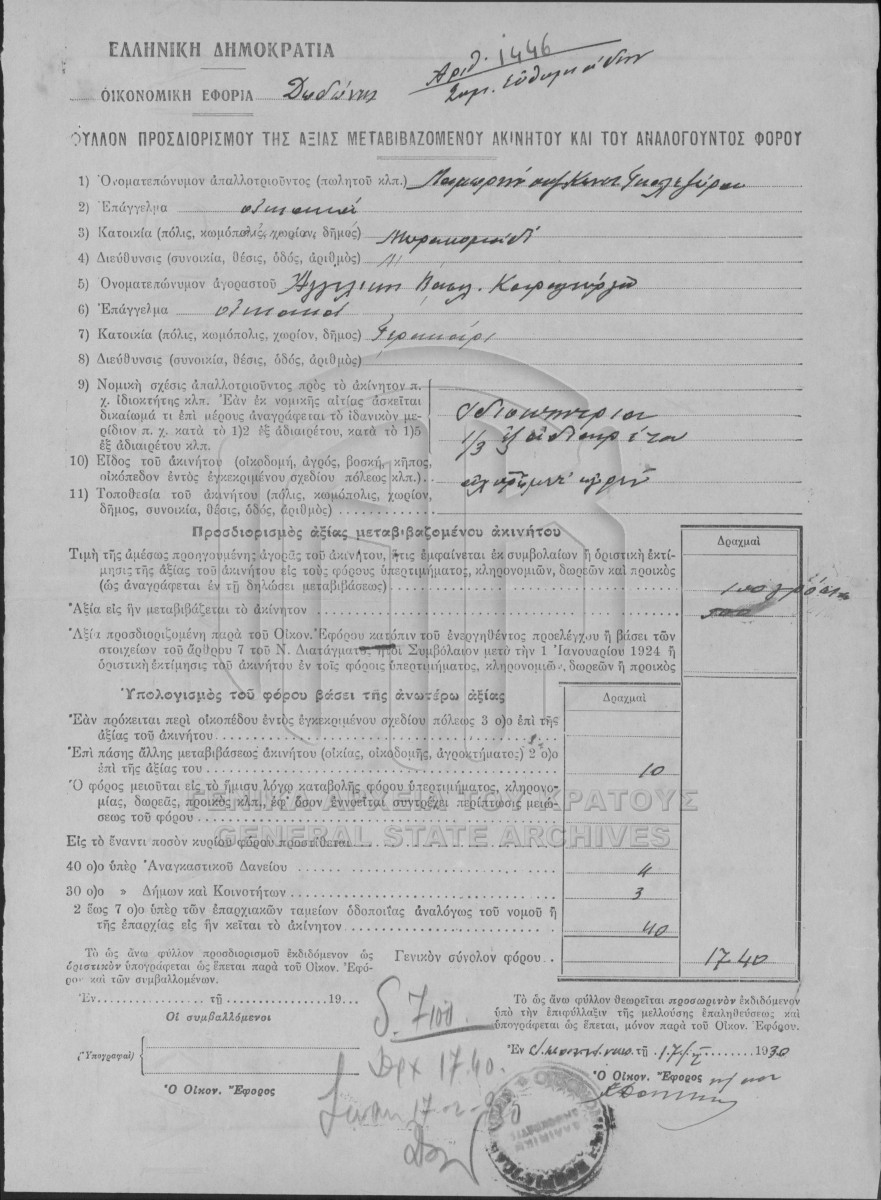 ΕΛΛΗΝΙΚΗ ΔΗΜΟΚΡΑΤΙΑ
Αριθ. 1446
ΟΙΚΟΝΟΜΙΚΗ ΕΦΟΡΙΑ Δωδώνης
ΦΥΛΛΟΝ ΠΡΟΣΔΙΟΡΙΣΜΟΥ ΤΗΣ ΑΞΙΑΣ ΜΕΤΑΒΙΒΑΖΟΜΕΝΟΥ ΑΚΙΝΗΤΟΥ ΚΑΙ ΤΟΥ ΑΝΑΛΟΓΟΥΝΤΟΣ ΦΟΡΟΥ
1) Ὀνοματεπώνυμον ἀπαλλοτριοῦντος (πωλητοῦ κλπ.)
2) Ἐπάγγελμα οικιακά
3) Κατοικία (πόλις, κωμόπολις, χωρίον, δῆμος)
4) Διεύθυνσις (συνοικία, θέσις, ὁδός, ἀριθμός)
5) Ὀνοματεπώνυμον ἀγοραστοῦ Αγγελικη Βασιλ.
6) Ἐπάγγελμα οικιακά
7) Κατοικία (πόλις, κωμόπολις, χωρίον, δῆμος)
8) Διεύθυνσις (συνοικία, θέσις, ὁδός, ἀριθμός)
9) Νομικὴ σχέσις ἀπαλλοτριοῦντος πρὸς τὸ ἀκίνητον π.
χ. ἰδιοκτήτης κλπ. Ἐὰν ἐκ νομικῆς αἰτίας ἀσκεῖται
δικαίωμά τι ἐπὶ μέρους ἀναγράφεται τὸ ἰδανικὸν με-
ρίδιον π. χ. κατὰ τὸ 1)2 ἐξ ἀδιαιρέτου, κατὰ τὸ 1)5
ἐξ ἀδιαιρέτου κλπ.
Ιδιοκτήτρια
1/3 εξ αδιαιρέτου
10) Εἶδος τοῦ ἀκινήτου (οἰκοδομή, ἀγρός, βοσκή, κῆπος,
οἰκόπεδον ἐντὸς ἐγκεκριμένου σχεδίου πόλεως κλπ.)
11) Τοποθεσία τοῦ ἀκινήτου (πόλις, κωμόπολις, χωρίον,
δῆμος, συνοικία, θέσις, ὁδός, ἀριθμός)
Προσδιορισμὸς ἀξίας μεταβιβαζομένου ἀκινήτου
Δραχμαὶ
Τιμὴ τῆς ἀμέσως προηγουμένης ἀγορᾶς τοῦ ἀκινήτου, ἥτις ἐμφαίνεται ἐκ συμβολαίων ἢ ὁριστικὴ ἐκτί-
μησις τῆς ἀξίας τοῦ ἀκινήτου εἰς τοὺς φόρους ὑπερτιμήματος, κληρονομιῶν, δωρεῶν καὶ προικὸς
(ὡς ἀναγράφεται ἐν τῇ δηλώσει μεταβιβάσεως)
Ἀξία εἰς ἣν μεταβιβάζεται τὸ ἀκίνητον 500
Ἀξία προσδιοριζομένη παρὰ τοῦ Οἰκον. Ἐφόρου κατόπιν τοῦ ἐνεργηθέντος προελέγχου ἢ βάσει τῶν
στοιχείων τοῦ ἄρθρου 7 τοῦ Ν. Διατάγματος ἤτοι Συμβόλαιον μετὰ τὴν 1 Ἰανουαρίου 1924 ἢ
ὁριστικὴ ἐκτίμησις τοῦ ἀκινήτου ἐν τοῖς φόροις ὑπερτιμήματος, κληρονομιῶν, δωρεῶν ἢ προικὸς
Ὑπολογισμὸς τοῦ φόρου βάσει τῆς ἀνωτέρω ἀξίας
Δραχμαὶ
Ἐὰν πρόκειται περὶ οἰκοπέδου ἐντὸς ἐγκεκριμένου σχεδίου πόλεως 3 ο)ο ἐπὶ τῆς
ἀξίας τοῦ ἀκινήτου
Ἐπὶ πάσης ἄλλης μεταβιβάσεως ἀκινήτου (οἰκίας, οἰκοδομῆς, ἀγροκτήματος) 2 ο)ο
ἐπὶ τῆς ἀξίας του 10
Ὁ φόρος μειοῦται εἰς τὸ ἥμισυ λόγῳ καταβολῆς φόρου ὑπερτιμήματος, κληρονο-
μίας, δωρεᾶς, προικὸς κλπ. ἐφ' ὅσον ἐννοεῖται συντρέχει περίπτωσις μειώ-
σεως τοῦ φόρου
ΓΕΝΙΚΑ ΑΡΧΕΙΑ ΤΟΥ ΚΡΑΤΟΥΣ
GENERAL STATE ARCHIVES
Εἰς τὸ ἔναντι ποσὸν κυρίου φόρου προστίθεται
40 ο)ο ὑπὲρ Ἀναγκαστικοῦ Δανείου 4
30 ο)ο » Δήμων καὶ Κοινοτήτων 3
2 ἕως 7 ο)ο ὑπὲρ τῶν ἐπαρχιακῶν ταμείων ὁδοποιΐας ἀναλόγως τοῦ νομοῦ ἢ
τῆς ἐπαρχίας εἰς ἣν κεῖται τὸ ἀκίνητον 40
Γενικὸν σύνολον φόρου 17 40
Τὸ ὡς ἄνω φύλλον προσδιορισμοῦ ἐκδιδόμενον ὡς
ὁριστικὸν ὑπογράφεται ὡς ἕπεται παρὰ τοῦ Οἰκον. Ἐφό-
ρου καὶ τῶν συμβαλλομένων.
Ἐν τῇ 19
Οἱ συμβαλλόμενοι
(Ὑπογραφαὶ)
Ὁ Οἰκον. Ἔφορος
7100
Δρχ 17.40.
Τὸ ὡς ἄνω φύλλον θεωρεῖται προσωρινὸν ἐκδιδόμενον
ὑπὸ τὴν ἐπιφύλαξιν τῆς μελλούσης ἐπαληθεύσεως καὶ
ὑπογράφεται ὡς ἕπεται, μόνον παρὰ τοῦ Οἰκον. Ἐφόρου.
Ἐν τῇ 1930
Ὁ Οἰκον. Ἔφορος